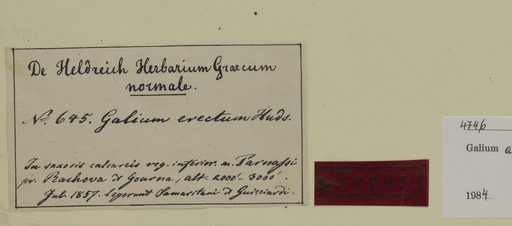 De Heldreich Herbarium Graecum
normale.
No. 645. Galium erectum Huds.
In saxosis calcareis reg. inferior. m. Parnassi
pr. Rachova & Gourna, alt. 2000'-3000'.
Jul. 1857. legerunt Samaritani & Guicciardi.
Typus
4746
Galium a
1984